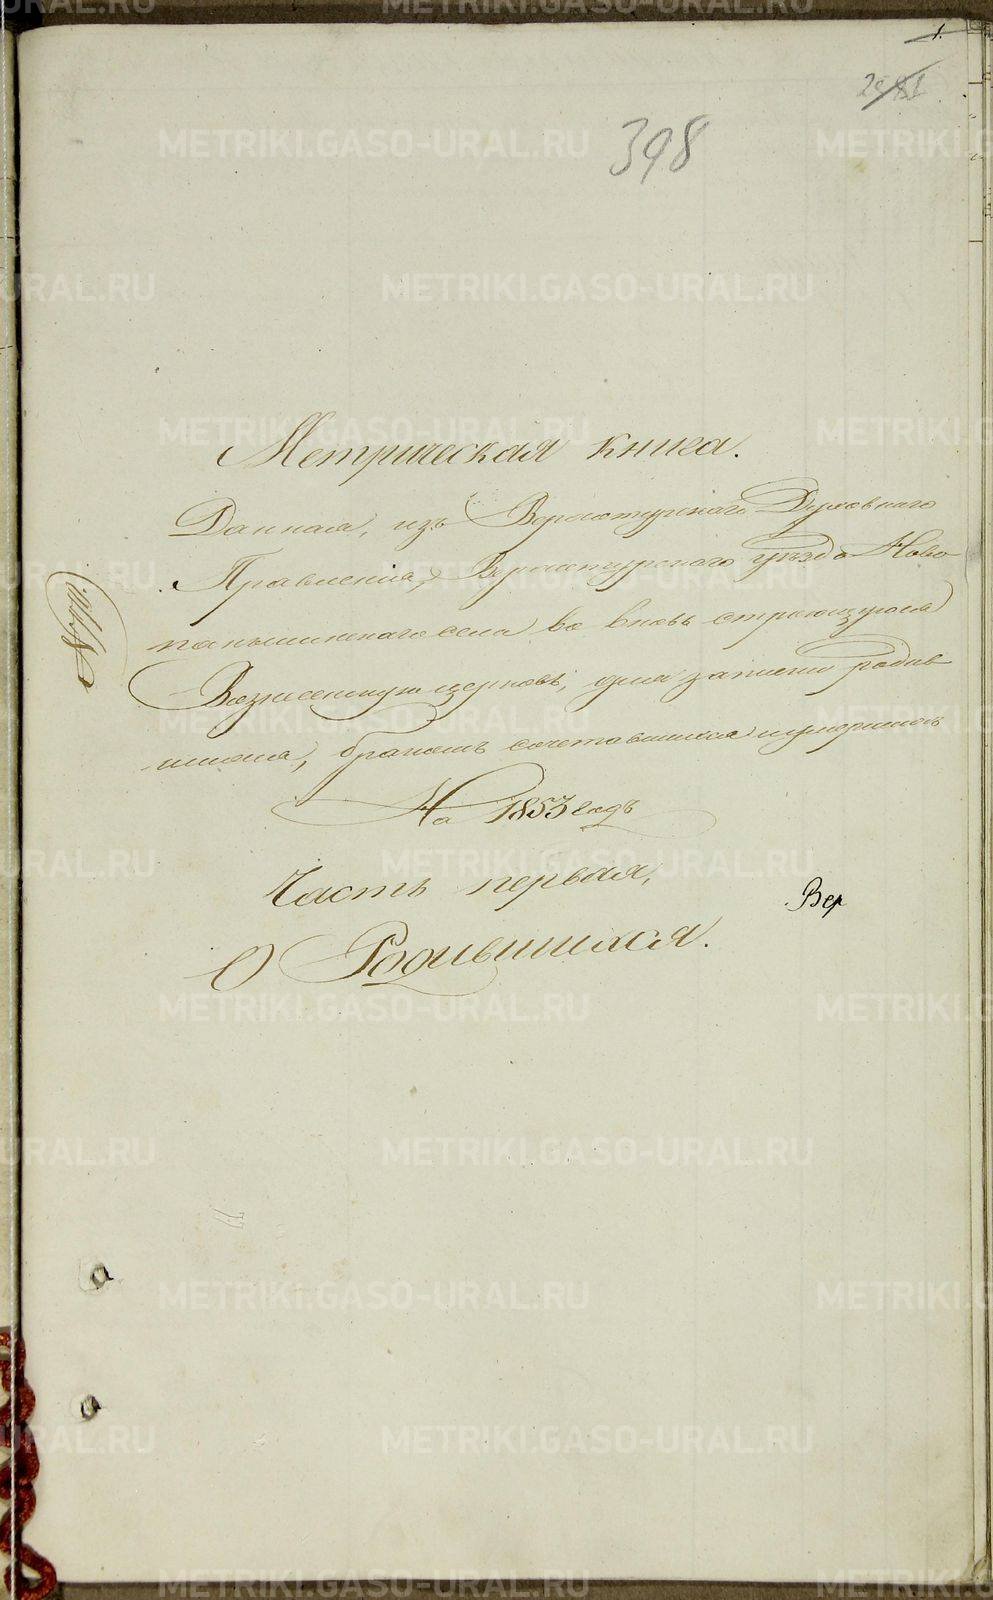 1.
398
Метрическая книга.
Данная, изъ Верхотурскаго Духовнаго
Правленія, Верхотурскаго уѣзда Ново
паньшинскаго села во вновь строющуюся
Вознесенскую церковь, для записки родив
шихся, бракомъ сочетавшихся и умершихъ
На 1853 годъ
Часть первая,
Вер
О Родившихся.
METRIKI.GASO-URAL.RU